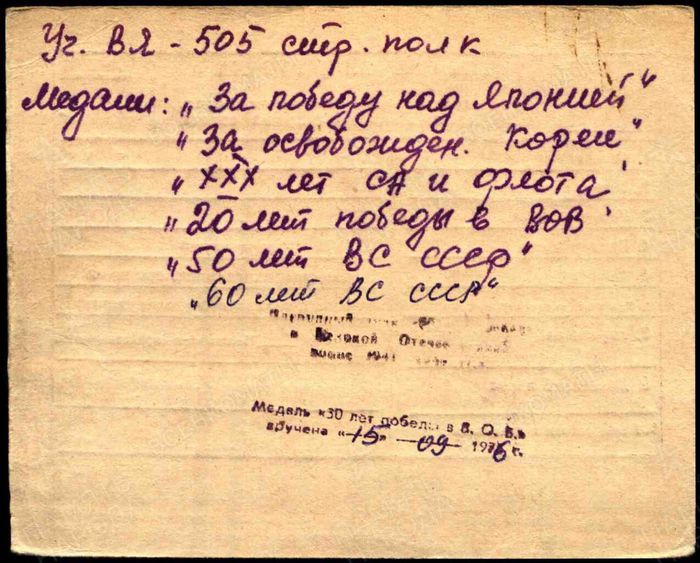 Уч. ВЯ - 505 стр. полк
Медали: „За победу над Японией"
„За освобожден. Кореи"
„XXX лет СА и флота"
„20 лет победы в ВОВ"
„50 лет ВС СССР"
„60 лет ВС СССР"
Нагрудный знак
в Великой Отечес
войне 1941
Медаль «30 лет победы в В. О. В.»
вручена «15» 09 1976 г.